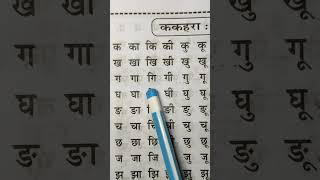 ककहरा :
क का कि की कु कू
ख खा खि खी खु खू
ग गा गि गी गु गू
घ घा घी घु घू
ङ ङा ङी ङु ङू
च चा ची चु चू
छ छा छी छु छू
ज जा जी जु जू
झ झा झी झु झू